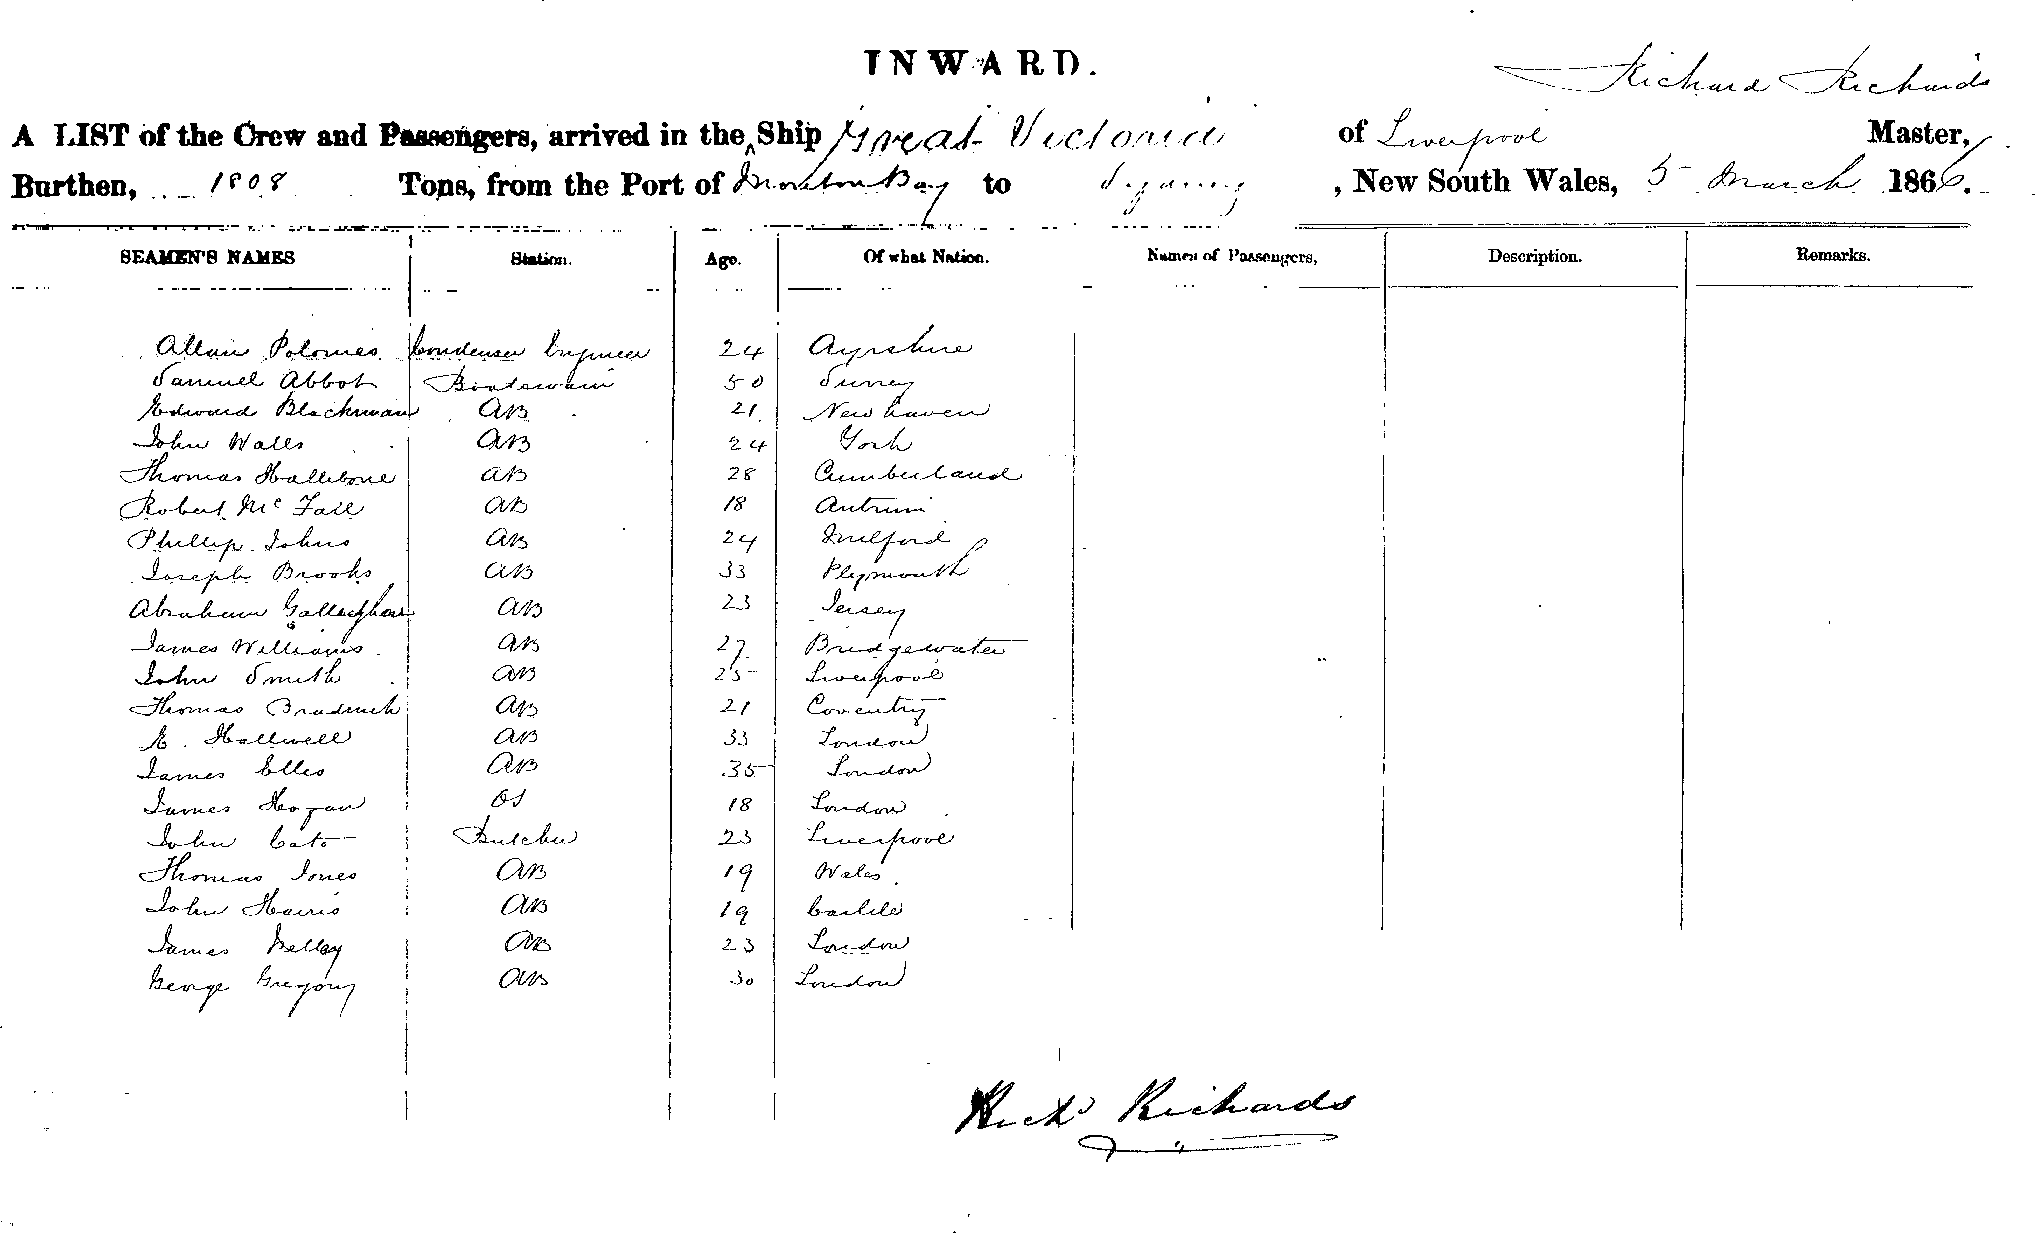 INWARD.
Richard Richards
A LIST of the Crew and Passengers, arrived in the Ship Great Victoria of Liverpool Master,
Burthen, 1808 Tons, from the Port of Moreton Bay to Sydney, New South Wales, 5 March 1866.
SEAMEN'S NAMES Station. Age. Of what Nation. Names of Passengers, Description. Remarks.
Allan Condenser Engineer 24 Ayrshire
Samuel Abbot Boatswain 50 Surrey
Edward Blackman AB 21 Newhaven
John Walls AB 24 York
Thomas Hallibone AB 28 Cumberland
Robert Mc Fall AB 18 Antrim
Phillip Johns AB 24 Milford
Joseph Brooks AB 33 Plymouth
Abraham AB 23 Jersey
James Williams AB 27 Bridgewater
John Smith AB 25 Liverpool
Thomas AB 21 Coventry
E. Hallwell AB 33 London
James Elles AB 35 London
James Hogan OS 18 London
John Cato Butcher 23 Liverpool
Thomas Jones AB 19 Wales
John Harris AB 19 Carlile
James Kelley AB 23 London
George Gregory AB 30 London
Richd Richards